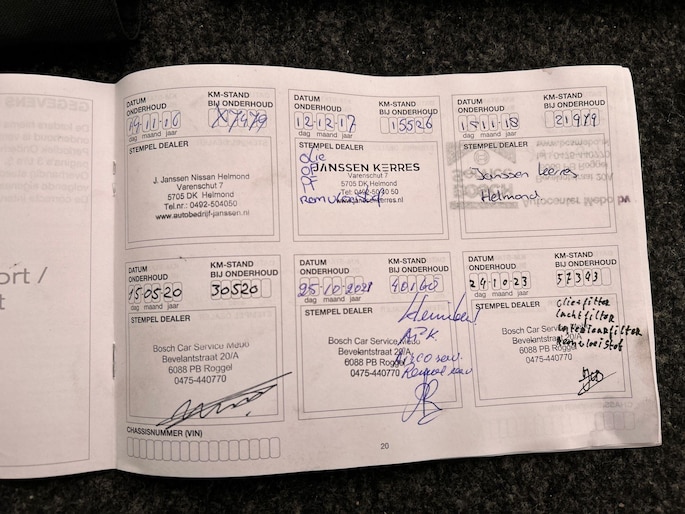 ort /
t
DATUM ONDERHOUD
KM-STAND BIJ ONDERHOUD
dag maand jaar
STEMPEL DEALER
J. Janssen Nissan Helmond
Varenschut 7
5705 DK Helmond
Tel.nr.: 0492-504050
www.autobedrijf-janssen.nl
DATUM ONDERHOUD
12-12-17
KM-STAND BIJ ONDERHOUD
15526
dag maand jaar
STEMPEL DEALER
Olie
JANSSEN KERRES
Varenschut 7
5705 DK Helmond
Tel: 0492-504050
www.janssenkerres.nl
DATUM ONDERHOUD
15-11-18
KM-STAND BIJ ONDERHOUD
21979
dag maand jaar
STEMPEL DEALER
Janssen kerres
Helmond
DATUM ONDERHOUD
15 05 20
KM-STAND BIJ ONDERHOUD
30520
dag maand jaar
STEMPEL DEALER
Bosch Car Service Mebo
Bevelantstraat 20/A
6088 PB Roggel
0475-440770
DATUM ONDERHOUD
25-10-2021
KM-STAND BIJ ONDERHOUD
40140
dag maand jaar
STEMPEL DEALER
Bosch Car Service Mebo
Bevelantstraat 20/A
6088 PB Roggel
0475-440770
APK
DATUM ONDERHOUD
24 10 23
KM-STAND BIJ ONDERHOUD
57343
dag maand jaar
STEMPEL DEALER
oliefilter
luchtfilter
interieurfilter
Remvloeistof
Bosch Car Service Mebo
Bevelantstraat 20/A
6088 PB Roggel
0475-440770
CHASSISNUMMER (VIN)
20